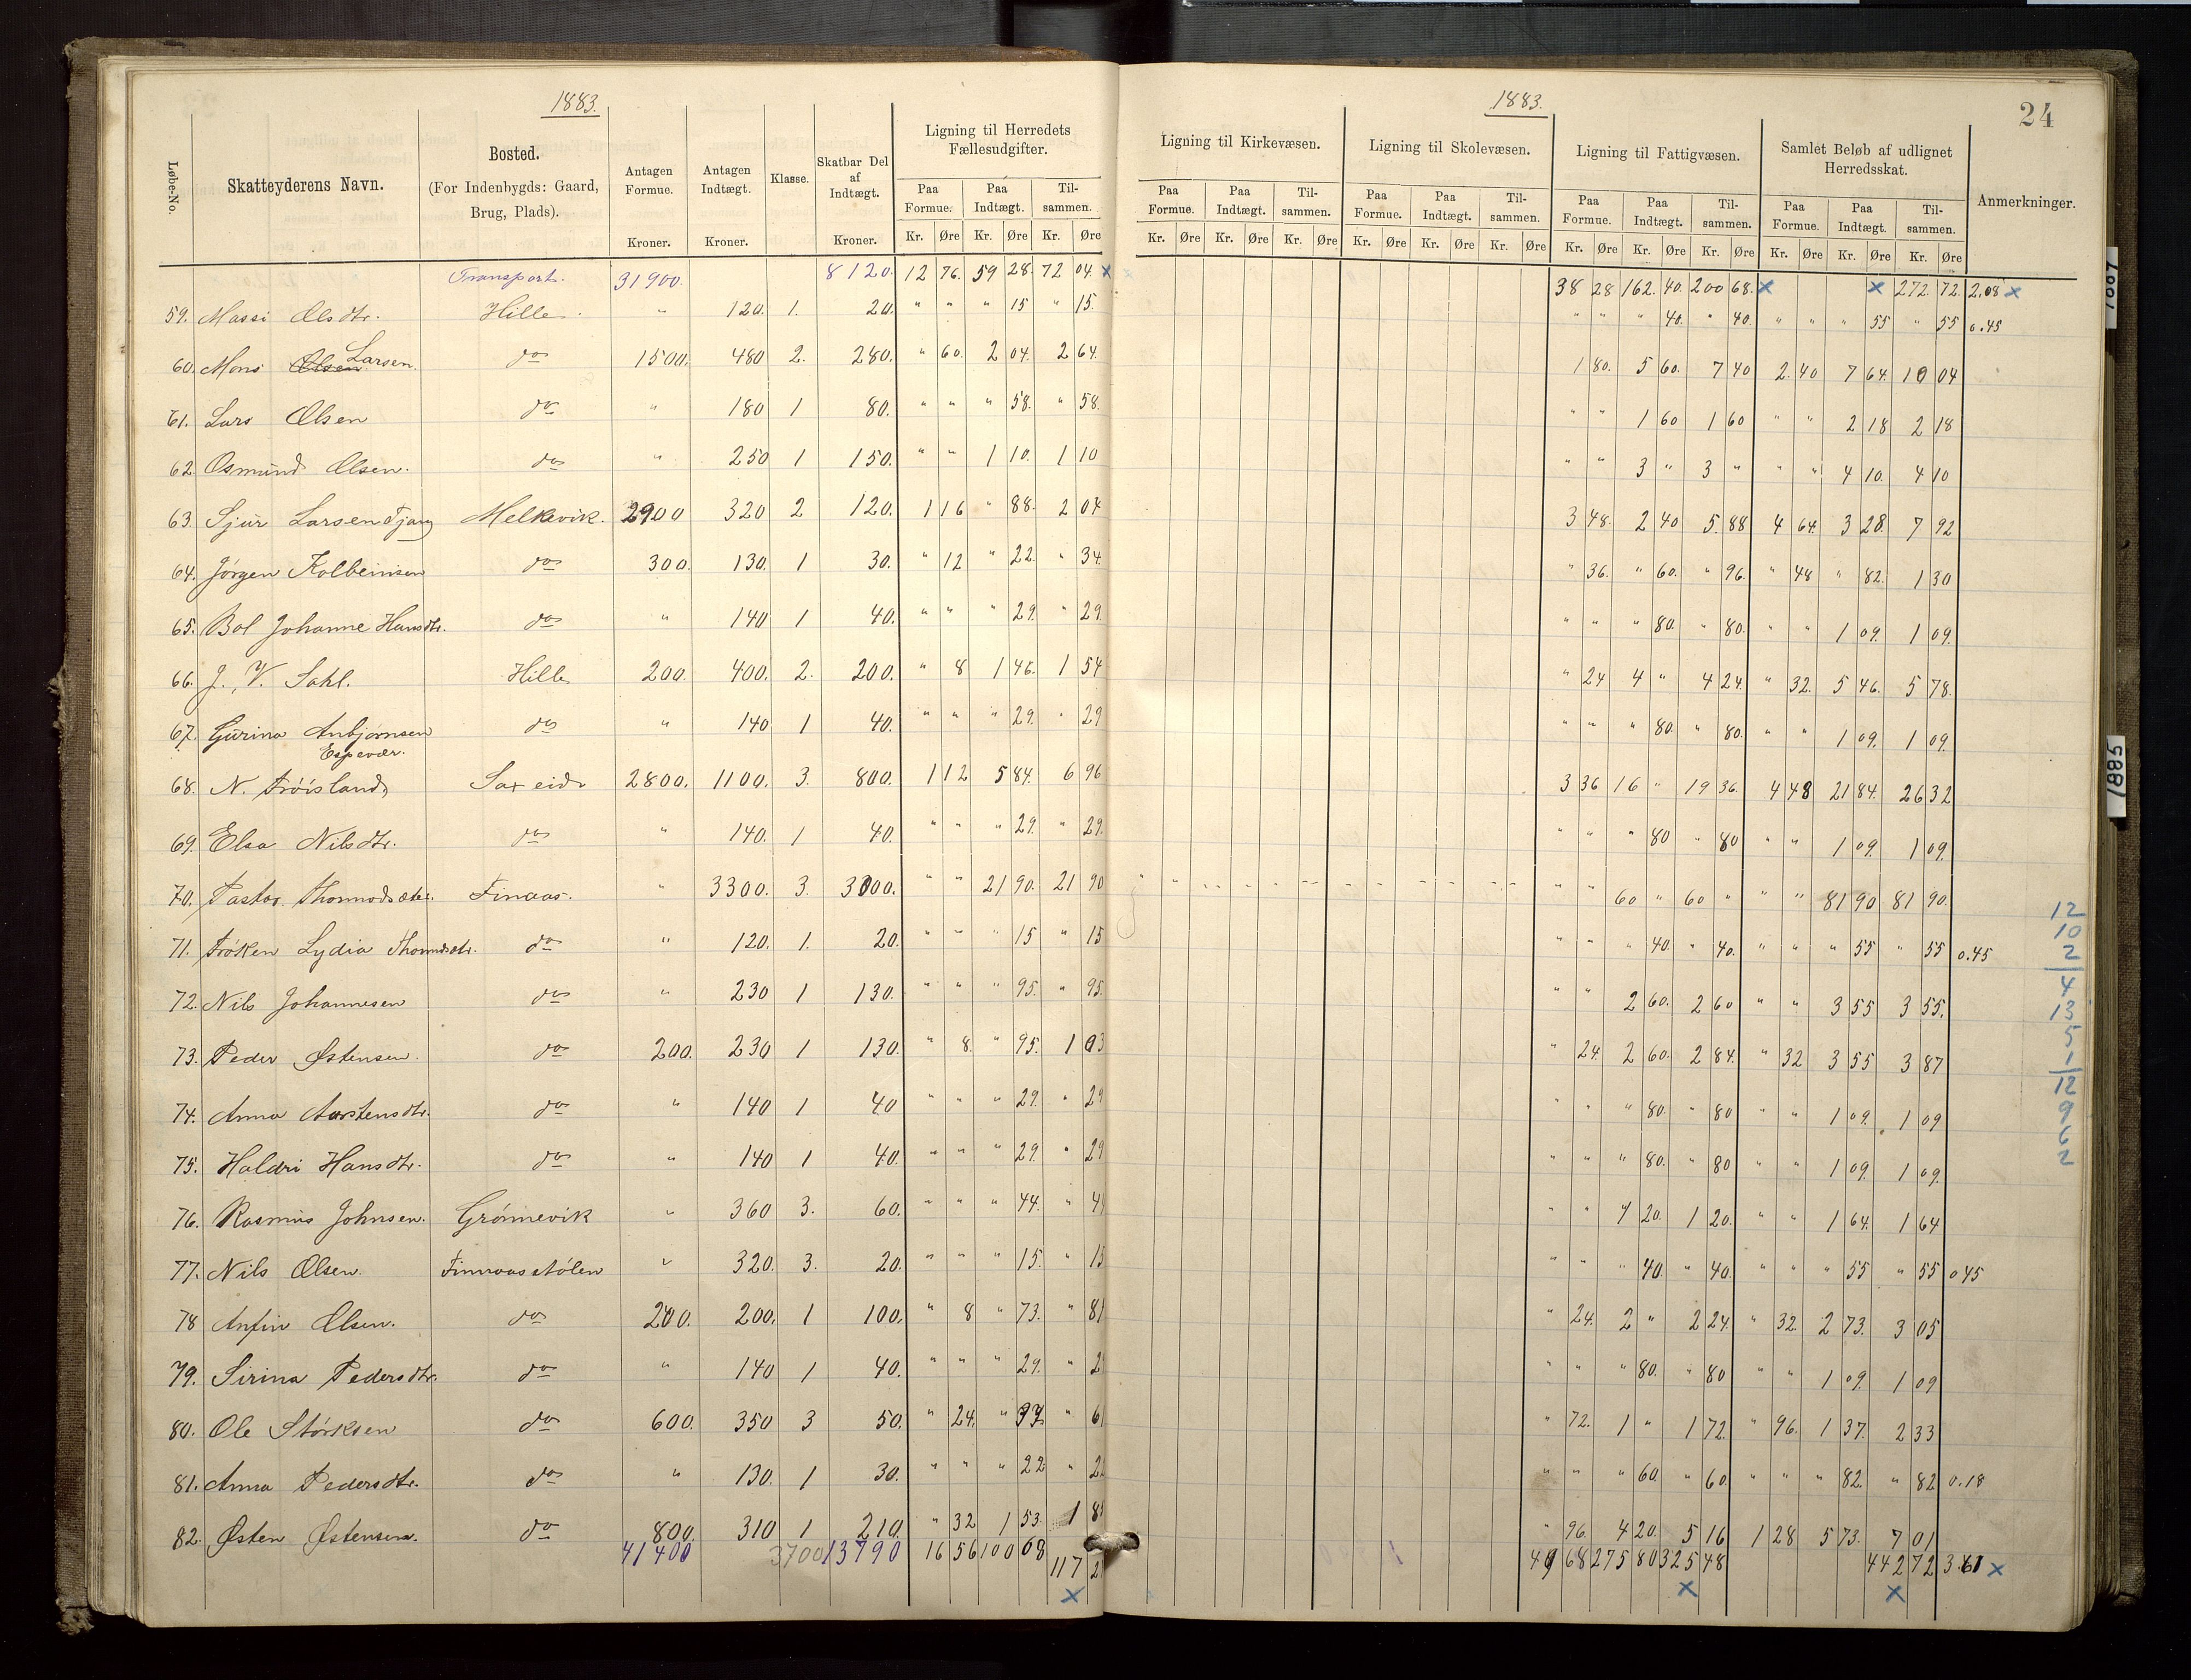 1883.
1883.
24
Løbe-No.
Skatteyderens Navn.
Bosted.
(For Indenbygds: Gaard,
Brug, Plads).
Antagen
Formue.
Kroner.
Antagen
Indtægt.
Kroner.
Klasse.
Skatbar Del
af
Indtægt.
Kroner.
Ligning til Herredets
Fællesudgifter.
Paa Formue. Paa Indtægt. Til- sammen.
Kr. Øre Kr. Øre Kr. Øre
Ligning til Kirkevæsen.
Paa Formue. Paa Indtægt. Til- sammen.
Kr. Øre Kr. Øre Kr. Øre
Ligning til Skolevæsen.
Paa Formue. Paa Indtægt. Til- sammen.
Kr. Øre Kr. Øre Kr. Øre
Ligning til Fattigvæsen.
Paa Formue. Paa Indtægt. Til- sammen.
Kr. Øre Kr. Øre Kr. Øre
Samlet Beløb af udlignet
Herredsskat.
Paa Formue. Paa Indtægt. Til- sammen.
Kr. Øre Kr. Øre Kr. Øre
Anmerkninger.
Transport. 31900. 8120. 12 76. 59 28. 72 04 x 38 28 162. 40. 200 68. x x 272. 72. 2.08 x
59. Massi Olsdtr. Hille " 120. 1. 20. " " " 15 " 15. " " " 40. " 40. " " " 55 " 55 0.45
60. Mons Olsen Larsen. do 1500. 480 2. 280. " 60. 2 04. 2 64. 1 80. 5 60. 7 40 2. 40 7 64. 10 04
61. Lars Olsen do " 180 1 80. " " " 58. " 58. " " 1 60 1 60 " " 2 18 2 18
62 Osmund Olsen. do " 250 1 150. " " 1 10. 1 10 " " 3 " 3 " " " 4 10. 4 10
63. Sjur Larsen Melkevik. 2900 320 2 120. 1 16 " 88. 2 04 3 48. 2 40 5. 88 4 64. 3 28. 7 92
64. Jørgen Kolbeinsen do 300. 130. 1 30. " 12 " 22. " 34. " 36. " 60. " 96. " 48 " 82. 1 30
65. Bol Johanne Hansdtr. do " 140 1 40. " " " 29. " 29 " " " 80. " 80. " " 1 09. 1 09.
66. J. V. Sahl. Hille 200. 400. 2. 200. " 8 1 46. 1 54 " 24 4 " 4 24. " 32. 5 46. 5 78.
67. Gurina Anbjørnsen do " 140 1 40. " " " 29. " 29 " " " 80. " 80. " " 1 09. 1 09.
Espevær.
68. N. Frøisland Saxeid 2800. 1100. 3. 800. 1 12 5 84. 6 96 3 36 16 " 19 36. 4 48 21 84. 26 32
69. Elsa Nilsdtr. do " 140. 1 40. " " " 29. " 29. " " " 80 " 80 " " 1 09. 1 09.
70. Pastor Thormodsæter. Finaas. " 3300. 3. 3000. " " 21 90. 21 90 " " " " 60 " 60 " " " 81 90 81 90.
71. Frøken Lydia do " 120. 1. 20. " " " 15 " 15 " " " 40. " 40. " " " 55 " 55 0.45
72. Nils Johannesen do " 230 1 130. " " " 95. " 95. " " 2 60. 2 60 " " 3 55 3 55.
73. Peder Østensen. do 200. 230 1 130. " 8. " 95. 1 03 " 24. 2 60. 2 84. " 32 3 55 3 87
74. Anna Aarstensdtr. do " 140 1 40 " " " 29. " 29 " " " 80. " 80 " " 1 09. 1 09
75. Haldri Hansdtr. do " 140 1 40. " " " 29. " 29 " " " 80. " 80 " " 1 09. 1 09.
76. Rasmus Johnsen. Grønnevik " 360 3. 60. " " " 44. " 4 " " 1 20. 1 20. " " 1 64. 1 64
77. Nils Olsen. Finnaasstølen " 320. 3. 20. " " " 15. " 15 " " " 40. " 40. " " " 55 " 55 0 45
78 Anfin Olsen. do 200. 200. 1 100. " 8 " 73. " 81 " 24. 2 " 2 24. " 32. 2 73. 3 05
79. Sirina Pedersdtr. do " 140 1 40. " " " 29. " 2 " " " 80. " 80 " " 1 09. 1 09
80. Ole Størksen do 600. 350 3 50. " 24. " 37. " 6 " 72. 1 " 1 72. " 96. 1 37. 2 33
81. Anna Pedersdtr. do " 130. 1 30. " " " 22 " 2 " " " 60. " 60. " " " 82. " 82 0.18
82. Østen Østensen. do 800. 310 1 210. " 32 1 53. 1 8 " 96. 4 20. 5 16 1 28 5 73. 7 01
41400 3700 13790 16 56 100 68 117 2 49 68 275 80 325 48 442 72 3.61 x
x x x
12
10
2
4
13
5
1
12
9
6
2
1887
1885